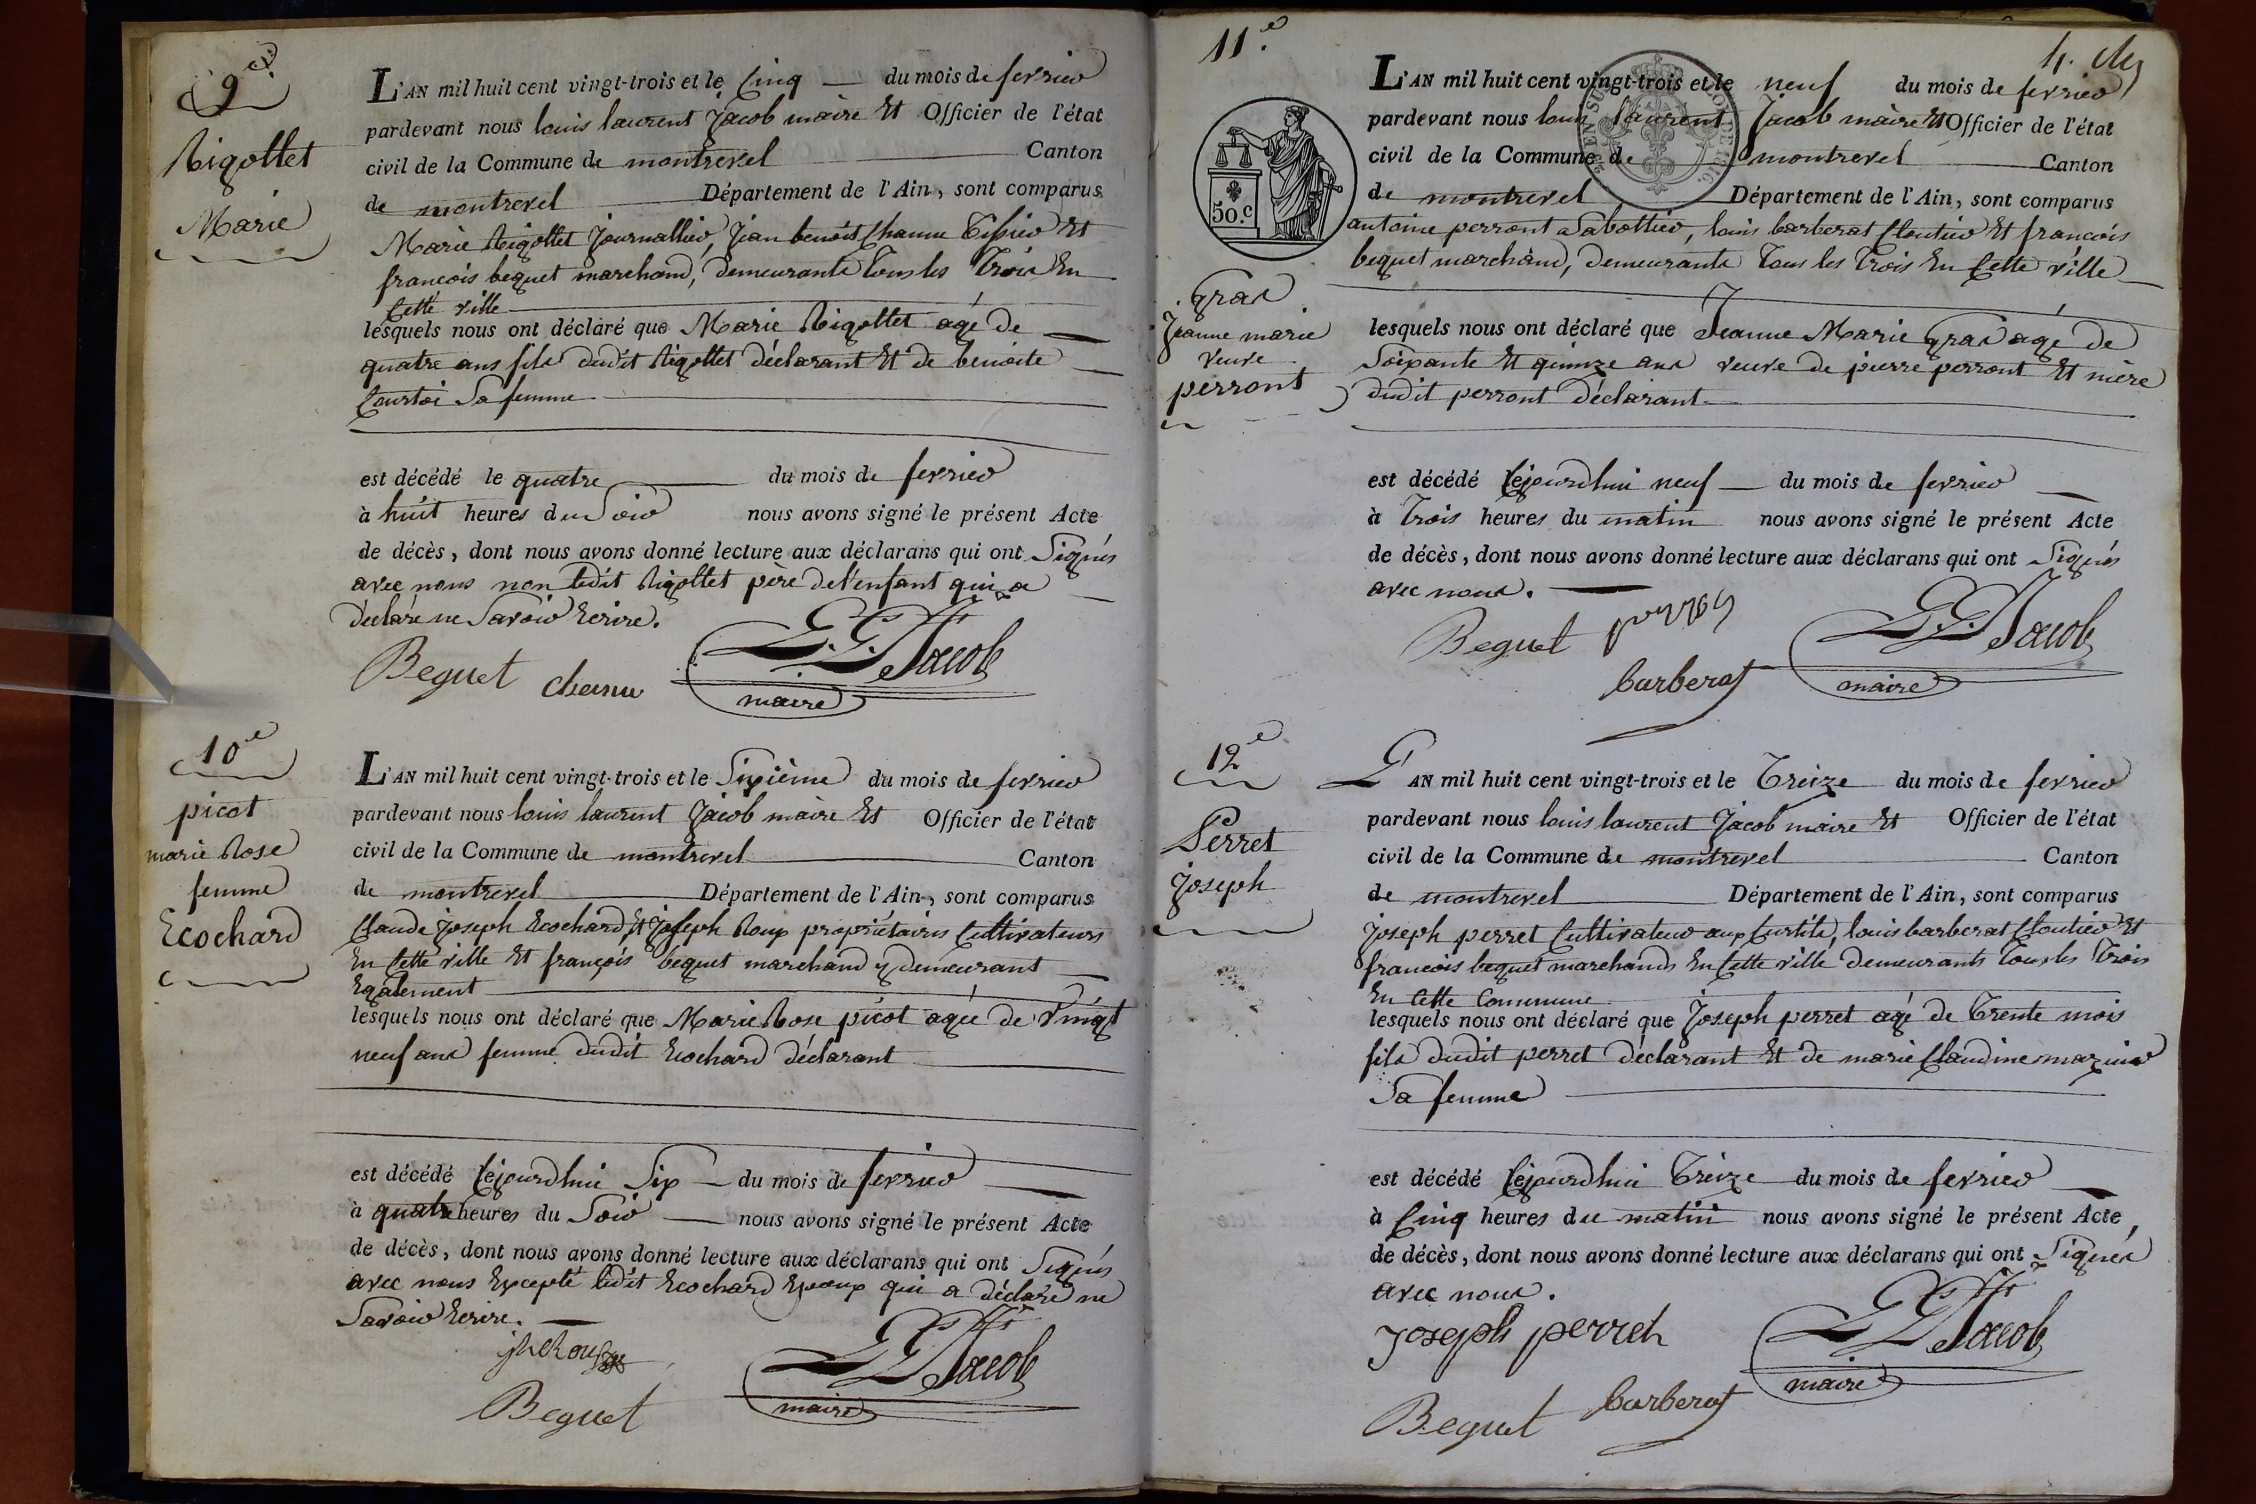 9.e
Rigollet
Marie
L'AN mil huit cent vingt-trois et le Cinq du mois de fevrier
pardevant nous louis laurent Jacob maire Et Officier de l'état
civil de la Commune de montrevel Canton
de montrevel Département de l'Ain, sont comparus
Marie Rigollet Journallier, Jean benoit Chanu Tissier Et
francois bequet marchand, demeurants Tous les Trois En
Cette ville
lesquels nous ont déclaré que Marie Rigollet agé de
quatre ans fils dudit Rigollet déclarant Et de benoite
Courtoi Sa femme
est décédé le quatre du mois de fevrier
à huit heures du Soir nous avons signé le présent Acte
de décès, dont nous avons donné lecture aux déclarans qui ont Signés
avec nous non ledit Rigollet père de l'enfant qui a
déclaré ne Savoir Ecrire.
Bequet chanu L. L. Jacob
maire
10e
picot
marie Rose
femme
Ecochard
L'AN mil huit cent vingt-trois et le Sixième du mois de fevrier
pardevant nous louis laurent Jacob maire Et Officier de l'état
civil de la Commune de montrevel Canton
de montrevel Département de l'Ain, sont comparus
Claude Joseph Ecochard, Et Joseph Roux propriétaires Cultivateurs
En Cette ville Et françois bequet marchand y demeurant
Egalement
lesquels nous ont déclaré que Marie Rose picot agée de Vingt
neuf ans femme dudit Ecochard déclarant
est décédé Cejourdhui Six du mois de fevrier
à quatre heures du Soir nous avons signé le présent Acte
de décès, dont nous avons donné lecture aux déclarans qui ont Signés
avec nous Excepté ledit Ecochard Epoux qui a déclaré ne
Savoir Ecrire.
L L Jacob
Bequet maire
11.e
50.c
Gras
Jeanne marie
veuve
perront
L'AN mil huit cent vingt-trois et le neuf du mois de fevrier
pardevant nous louis laurent Jacob maire Et Officier de l'état
civil de la Commune de montrevel Canton
de montrevel Département de l'Ain, sont comparus
antoine perront Sabottier, louis barberat Cloutier Et francois
bequet marchand, demeurants Tous les Trois En Cette ville
lesquels nous ont déclaré que Jeanne Marie Gras agé de
Soixante Et quinze ans veuve de pierre perront Et mère
dudit perront déclarant
est décédé Cejourdhui neuf du mois de fevrier
à Trois heures du matin nous avons signé le présent Acte
de décès, dont nous avons donné lecture aux déclarans qui ont Signés
avec nous.
Bequet L. L. Jacob
barberat maire
12e
Perret
Joseph
L'AN mil huit cent vingt-trois et le Treize du mois de fevrier
pardevant nous louis laurent Jacob maire Et Officier de l'état
civil de la Commune de montrevel Canton
de montrevel Département de l'Ain, sont comparus
Joseph perret Cultivateur aux Curtils, louis barberat Cloutier Et
francois bequet marchands En Cette ville demeurants Tous les Trois
En Cette Commune
lesquels nous ont déclaré que Joseph perret agé de Trente mois
fils dudit perret déclarant Et de marie Claudine mazuir
Sa femme
est décédé Cejourdhui Treize du mois de fevrier
à Cinq heures du matin nous avons signé le présent Acte
de décès, dont nous avons donné lecture aux déclarans qui ont Signés
avec nous.
Joseph perret L L Jacob
Bequet barberat maire